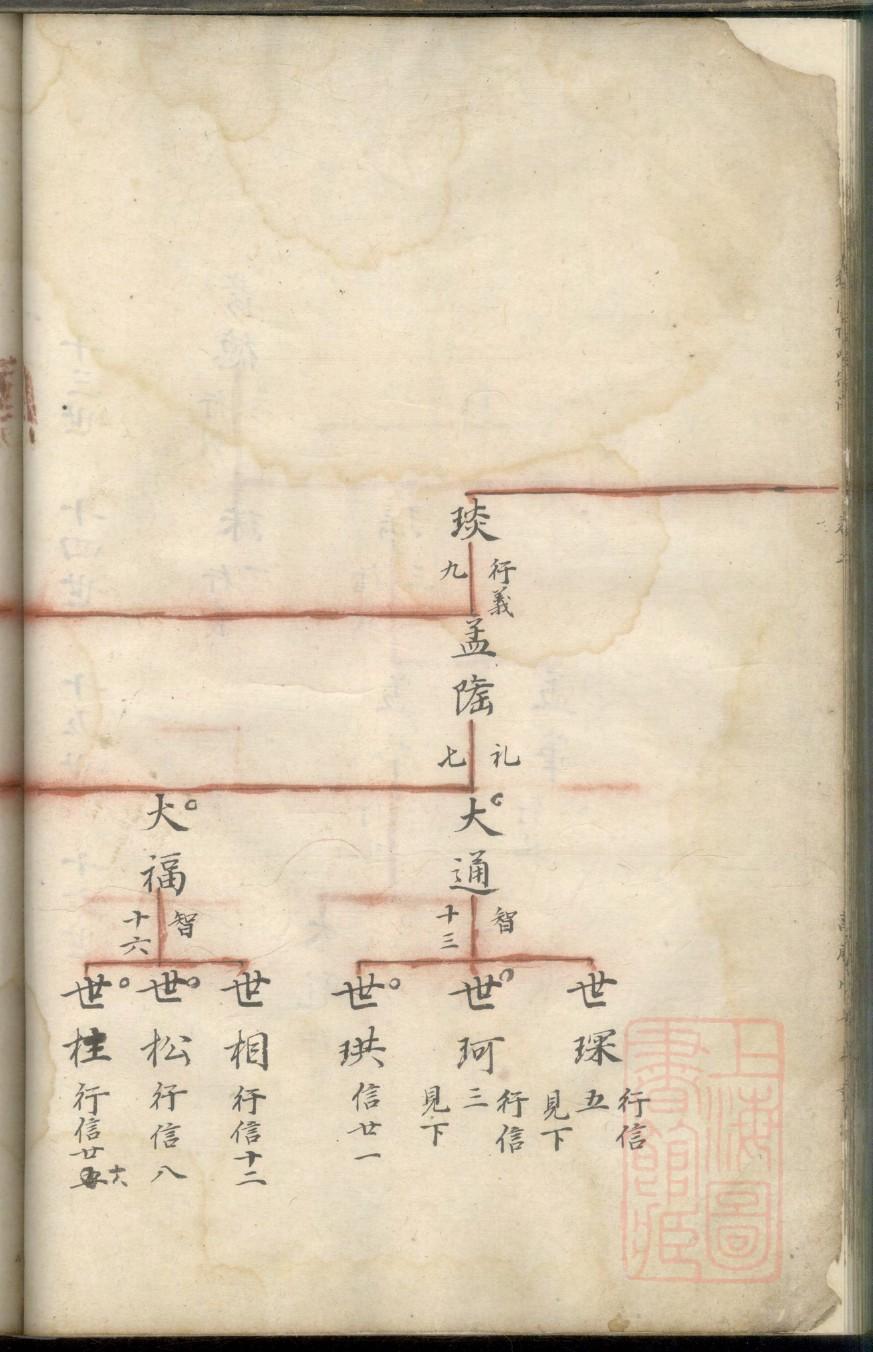 琰
行義
九
孟隆
礼
七
大通
智
十三
世琛
行信
五
見下
世珂
行信
三
見下
世珙
信廿一
大福
智
十六
世相
行信十二
世松
行信八
世柱
行信廿
六
上海圖
書館藏